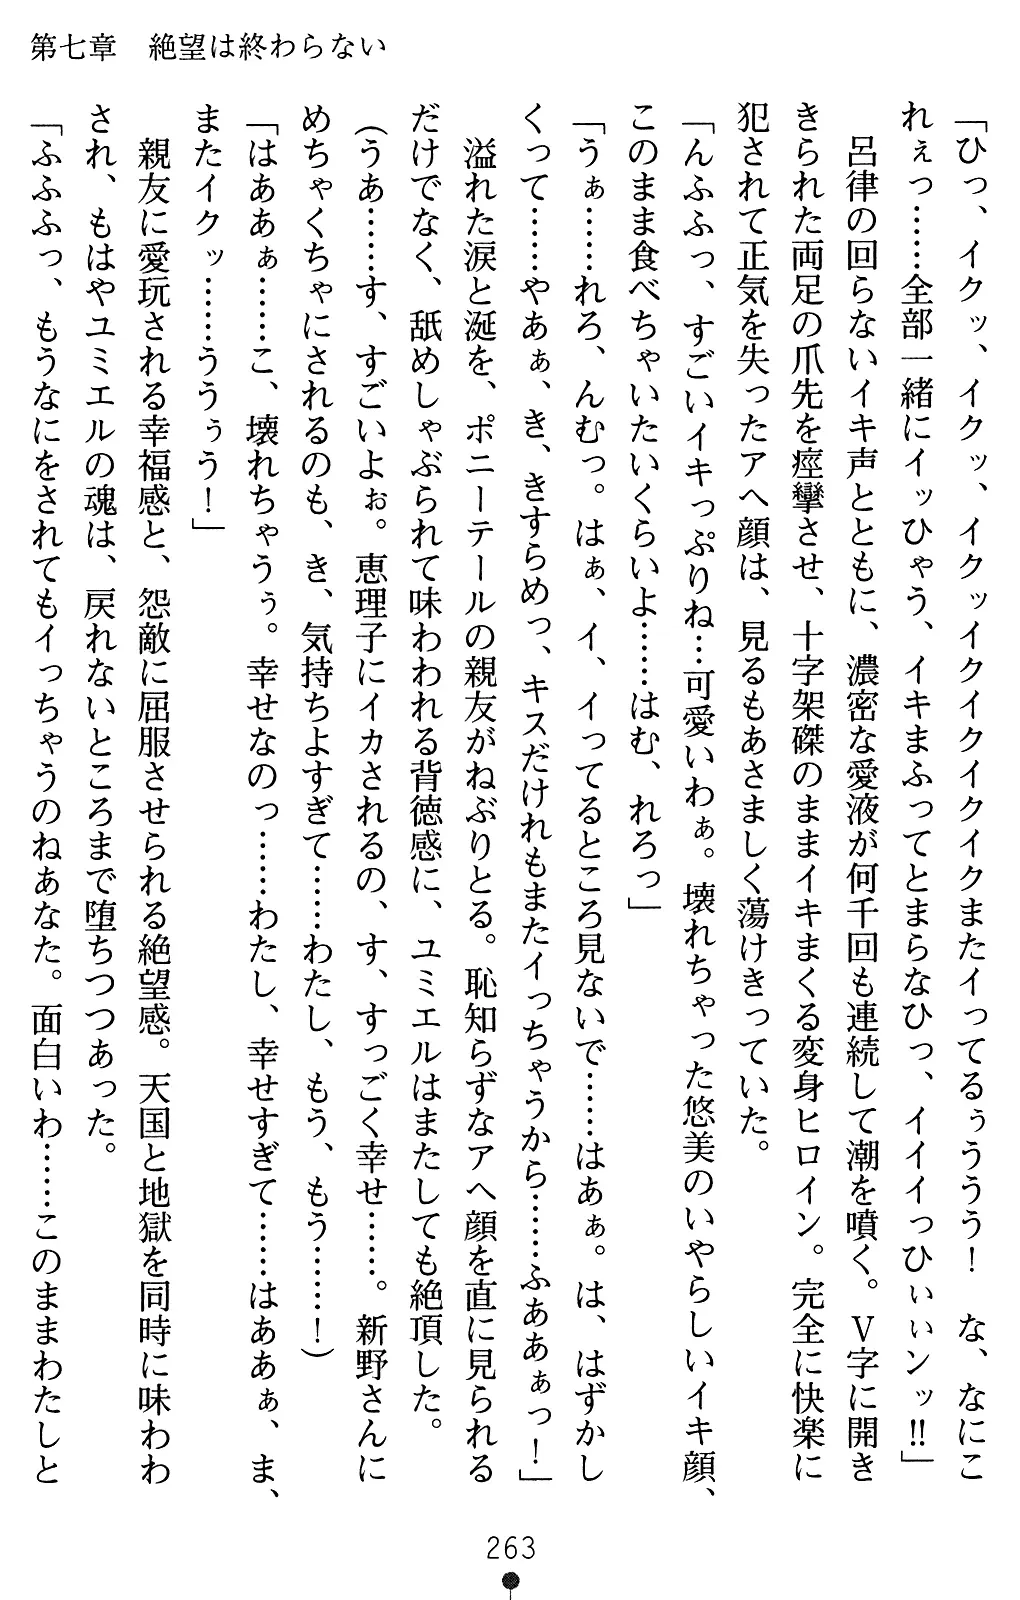 第七章　絶望は終わらない
「ひっ、イクッ、イクッ、イクッイクイクイクイクまたイってるぅううう！　な、なにこ
れぇっ……全部一緒にイッひゃう、イキまふってとまらなひっ、イイイっひぃぃンッ‼」
　呂律の回らないイキ声とともに、濃密な愛液が何千回も連続して潮を噴く。Ｖ字に開き
きられた両足の爪先を痙攣させ、十字架磔のままイキまくる変身ヒロイン。完全に快楽に
犯されて正気を失ったアヘ顔は、見るもあさましく蕩けきっていた。
「んふふっ、すごいイキっぷりね…可愛いわぁ。壊れちゃった悠美のいやらしいイキ顔、
このまま食べちゃいたいくらいよ……はむ、れろっ」
「うぁ……れろ、んむっ。はぁ、イ、イってるところ見ないで……はあぁ。は、はずかし
くって……やあぁ、き、きすらめっ、キスだけれもまたイっちゃうから……ふああぁっ！」
　溢れた涙と涎を、ポニーテールの親友がねぶりとる。恥知らずなアヘ顔を直に見られる
だけでなく、舐めしゃぶられて味わわれる背徳感に、ユミエルはまたしても絶頂した。
（うあ……す、すごいよぉ。恵理子にイカされるの、す、すっごく幸せ……。新野さんに
めちゃくちゃにされるのも、き、気持ちよすぎて……わたし、もう、もう……！）
「はああぁ……こ、壊れちゃうぅ。幸せなのっ……わたし、幸せすぎて……はああぁ、ま、
またイクッ……ううぅう！」
　親友に愛玩される幸福感と、怨敵に屈服させられる絶望感。天国と地獄を同時に味わわ
され、もはやユミエルの魂は、戻れないところまで堕ちつつあった。
「ふふふっ、もうなにをされてもイっちゃうのねあなた。面白いわ……このままわたしと
263